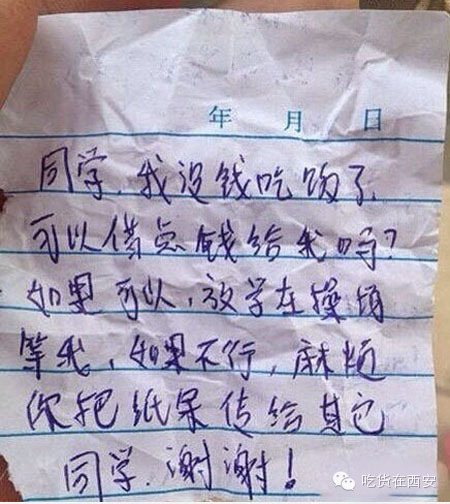 年 月 日
同学,我没钱吃饭了
可以借点钱给我吗?
如果可以,放学在操场
等我,如果不行,麻烦
你把纸条传给其它
同学,谢谢!
吃货在西安